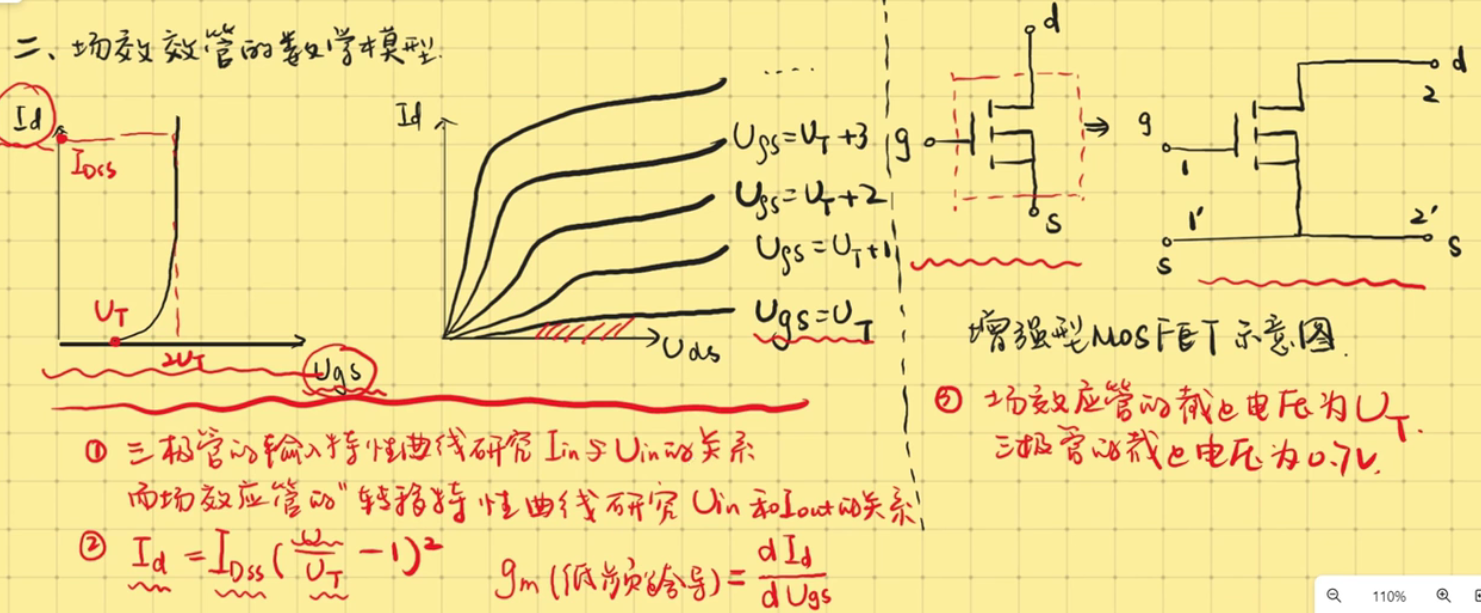 二、场效效管的数学模型.
Id
IDss
UT
2UT
Ugs
Id
.....
Ugs=UT+3
Ugs=UT+2
Ugs=UT+1
Ugs=UT
Uds
d
g
s
⇒
g
1
1'
s
d
2
2'
s
增强型MOSFET示意图.
① 三极管的输入特性曲线研究 Iin与Uin的关系
而场效应管的"转移特性曲线研究 Uin和Iout的关系
② Id = IDss( /UT -1)²
gm(低频跨导) = dId/dUgs
③ 场效应管的截止电压为UT.
三极管的截止电压为0.7V.
110%